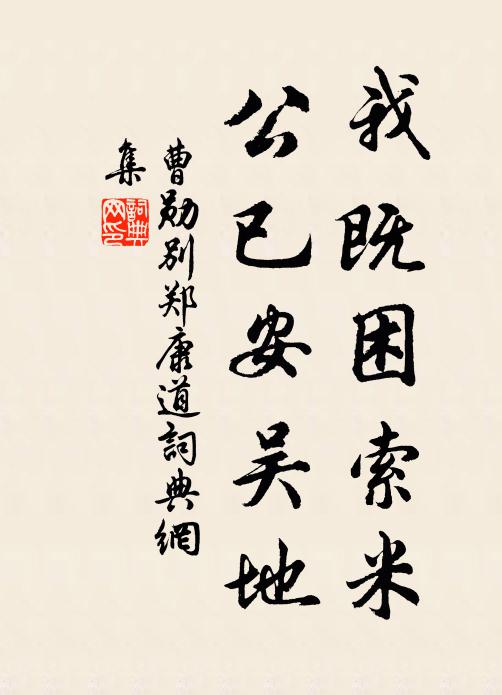 我既困索米
公已安吴地
曹勋别郑康道詞典網
集
詞典
网印